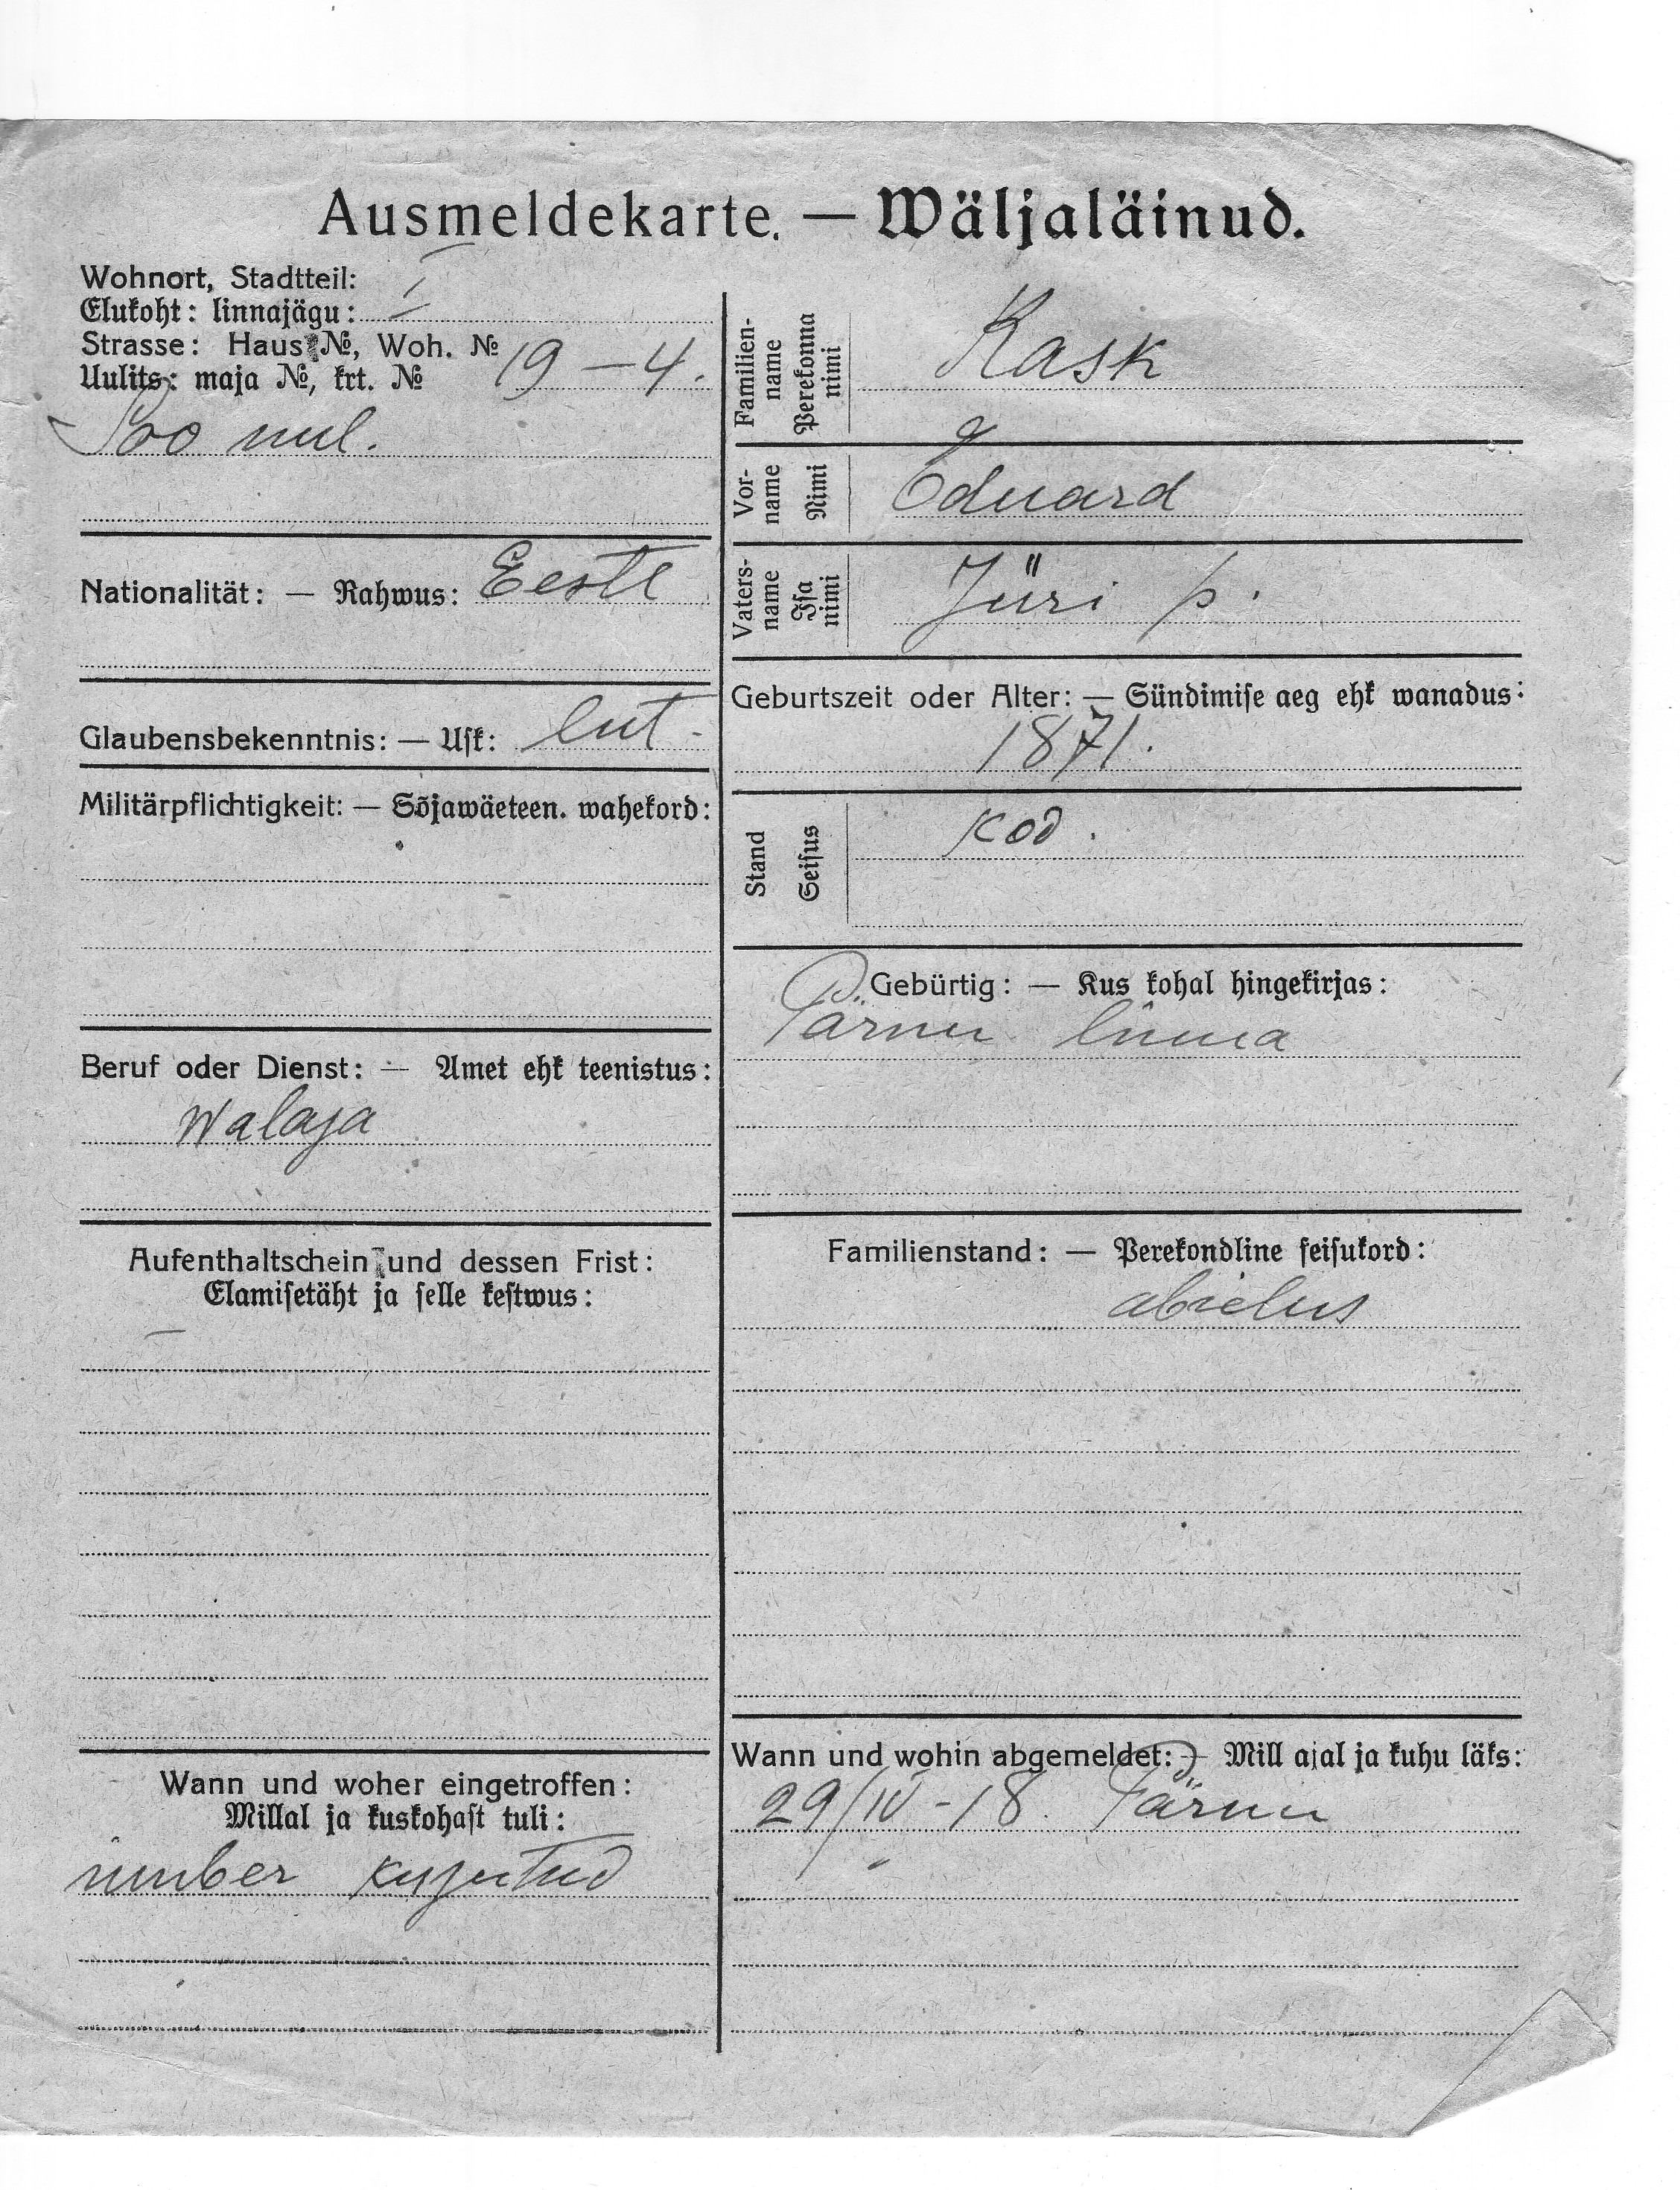 Ausmeldekarte. — Wäljaläinud.
Wohnort, Stadtteil:
Elukoht: linnajägu: I
Strasse: Haus №, Woh. №
Uulits: maja №, krt. № 19 – 4.
Soo uul.
Nationalität: — Rahwus: Eestl
Glaubensbekenntnis: — Usk: lut.
Militärpflichtigkeit: — Sõjawäeteen. wahekord:
Beruf oder Dienst: — Amet ehk teenistus:
Walaja
Aufenthaltschein und dessen Frist:
Elamisetäht ja selle kestwus:
—
Wann und woher eingetroffen:
Millal ja kuskohast tuli:
ümber kirjutud
Familien-
name
Perekonna
nimi
Kask
Vor-
name
Nimi
Eduard
Vaters-
name
Isa
nimi
Jüri p.
Geburtszeit oder Alter: — Sündimise aeg ehk wanadus:
1871.
Stand
Seisus
Kod.
Gebürtig: — Kus kohal hingekirjas:
Pärnu linna
Familienstand: — Perekondline seisukord:
abielus
Wann und wohin abgemeldet: — Mill ajal ja kuhu läks:
29/IV - 18. Pärnu